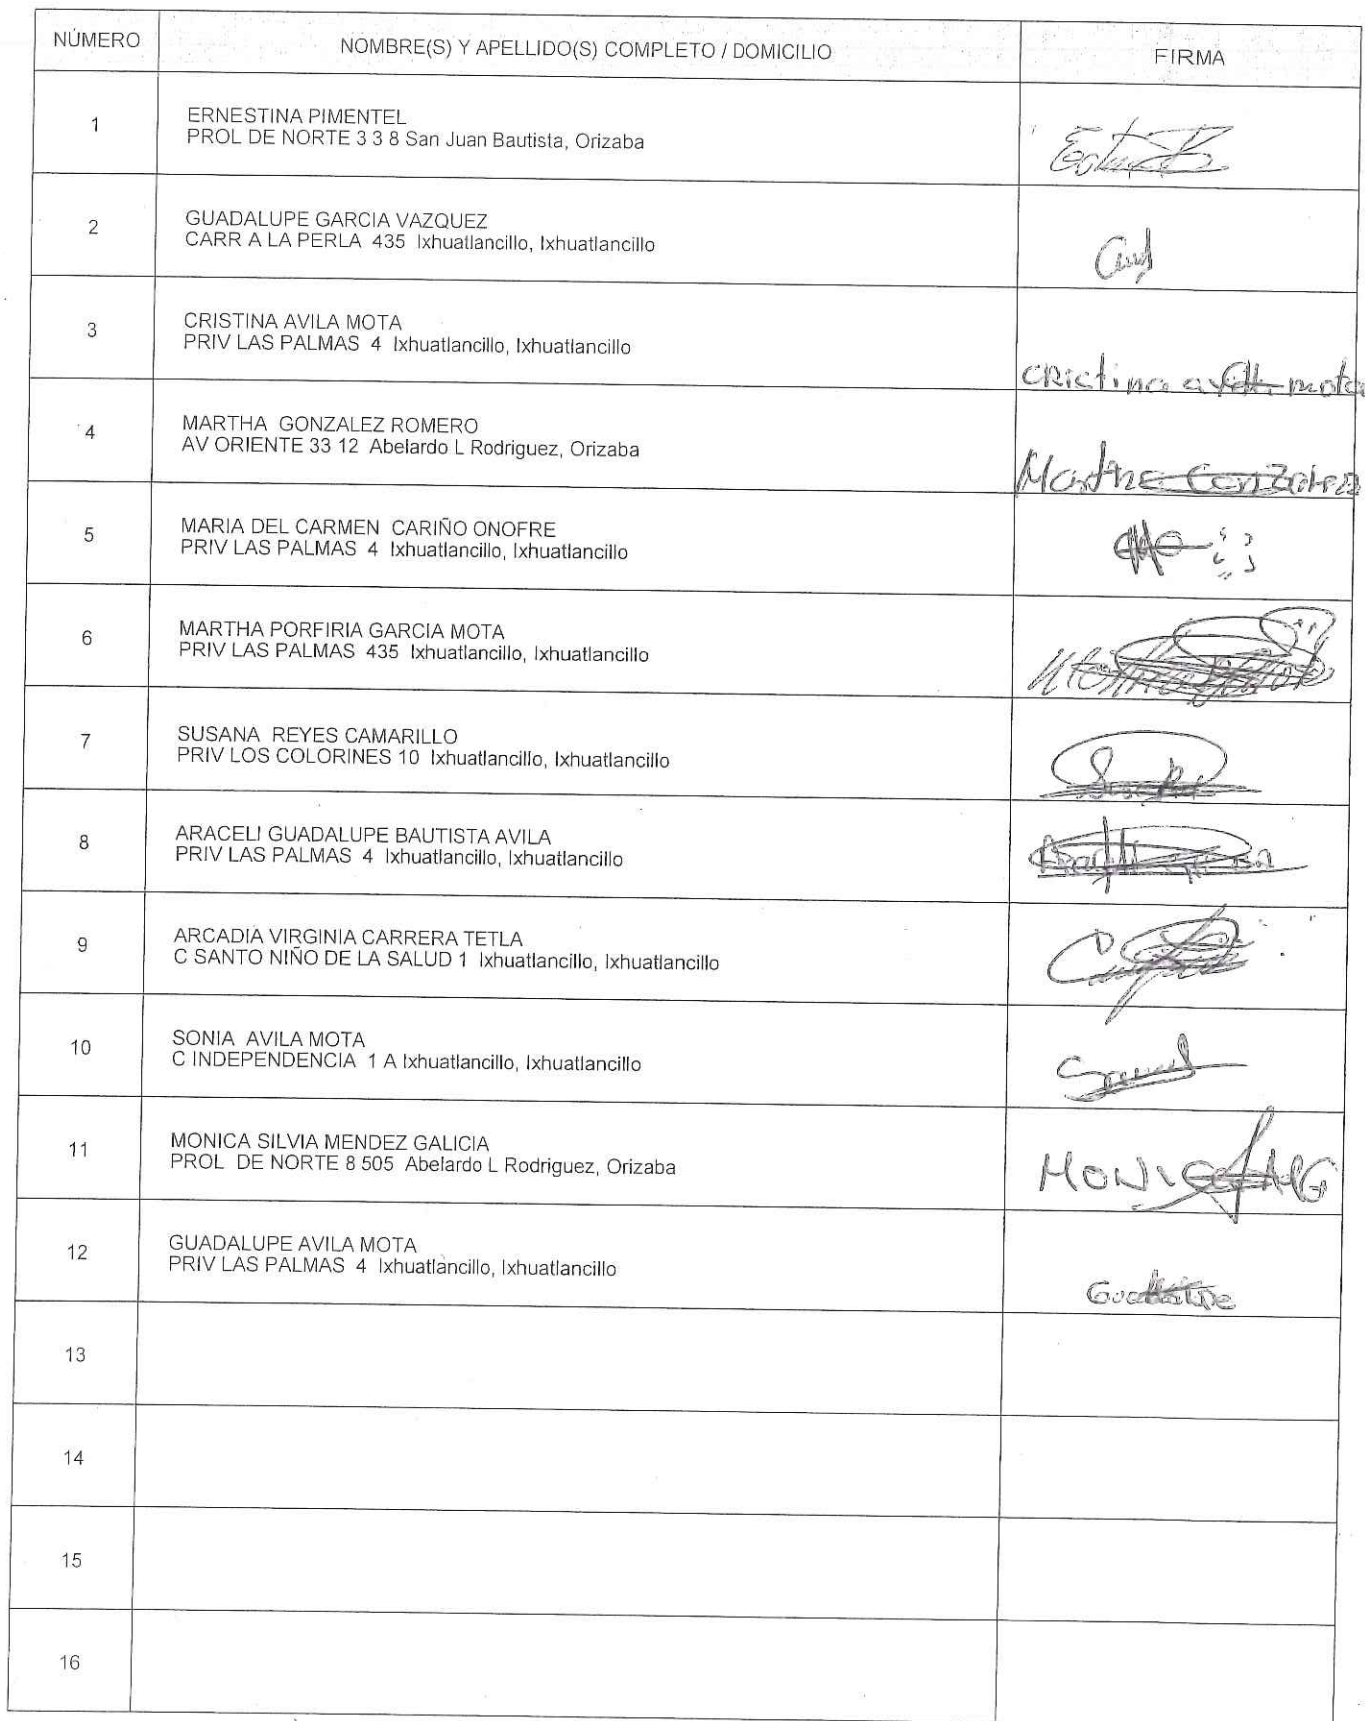 NÚMERO NOMBRE(S) Y APELLIDO(S) COMPLETO / DOMICILIO FIRMA
1 ERNESTINA PIMENTEL
PROL DE NORTE 3 3 8 San Juan Bautista, Orizaba
2 GUADALUPE GARCIA VAZQUEZ
CARR A LA PERLA 435 Ixhuatlancillo, Ixhuatlancillo
3 CRISTINA AVILA MOTA
PRIV LAS PALMAS 4 Ixhuatlancillo, Ixhuatlancillo
CRistina avila mota
4 MARTHA GONZALEZ ROMERO
AV ORIENTE 33 12 Abelardo L Rodriguez, Orizaba
Martha Gonzalez
5 MARIA DEL CARMEN CARIÑO ONOFRE
PRIV LAS PALMAS 4 Ixhuatlancillo, Ixhuatlancillo
6 MARTHA PORFIRIA GARCIA MOTA
PRIV LAS PALMAS 435 Ixhuatlancillo, Ixhuatlancillo
7 SUSANA REYES CAMARILLO
PRIV LOS COLORINES 10 Ixhuatlancillo, Ixhuatlancillo
8 ARACELI GUADALUPE BAUTISTA AVILA
PRIV LAS PALMAS 4 Ixhuatlancillo, Ixhuatlancillo
9 ARCADIA VIRGINIA CARRERA TETLA
C SANTO NIÑO DE LA SALUD 1 Ixhuatlancillo, Ixhuatlancillo
10 SONIA AVILA MOTA
C INDEPENDENCIA 1 A Ixhuatlancillo, Ixhuatlancillo
11 MONICA SILVIA MENDEZ GALICIA
PROL DE NORTE 8 505 Abelardo L Rodriguez, Orizaba
12 GUADALUPE AVILA MOTA
PRIV LAS PALMAS 4 Ixhuatlancillo, Ixhuatlancillo
Guadalupe
13
14
15
16